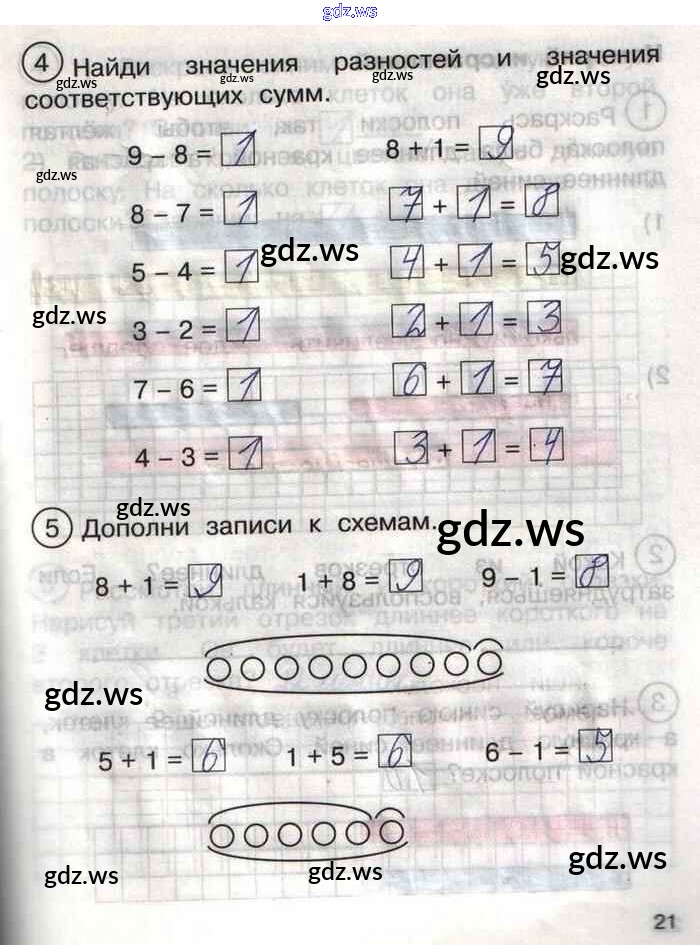 gdz.ws
4 Найди значения разностей и значения
gdz.ws gdz.ws gdz.ws gdz.ws
соответствующих сумм.
9 – 8 = 1 8 + 1 = 9
gdz.ws
8 – 7 = 1 7 + 1 = 8
gdz.ws gdz.ws
5 – 4 = 1 4 + 1 = 5
gdz.ws
3 – 2 = 1 2 + 1 = 3
7 – 6 = 1 6 + 1 = 7
4 – 3 = 1 3 + 1 = 4
gdz.ws gdz.ws
5 Дополни записи к схемам.
8 + 1 = 9 1 + 8 = 9 9 – 1 = 8
gdz.ws
5 + 1 = 6 1 + 5 = 6 6 – 1 = 5
gdz.ws gdz.ws gdz.ws
21